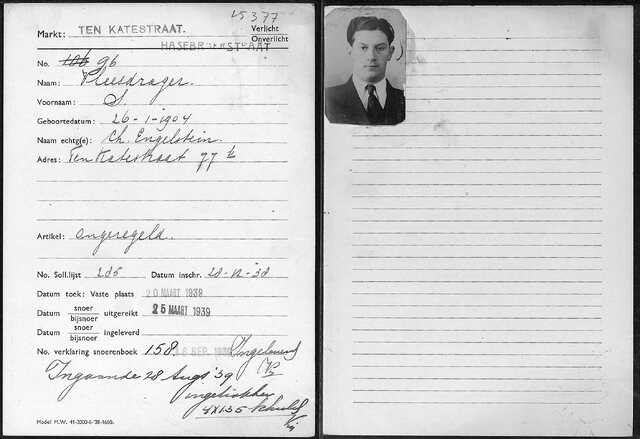 15377
Markt: TEN KATESTRAAT. Verlicht
Onverlicht
HASEBROEKSTRAAT
No. 106 96
Naam: Vleesdrager.
Voornaam: S.
Geboortedatum: 26-1-1904
Naam echtg(e): Ch. Engelstein.
Adres: Ten Katestraat 77
Artikel: ongeregeld.
No. Soll.lijst 285 Datum inschr. 28-12-38
Datum toek: Vaste plaats 20 MAART 1939
Datum snoer uitgereikt 25 MAART 1939
bijsnoer
Datum snoer ingeleverd
bijsnoer
No. verklaring snoerenboek 158. SEP. 1939 Ingeleverd
Ingaande 28 Aug '39
ingetrokken
4X1.35 schuld
Model M.W. 41-2000-6-'38-1650.